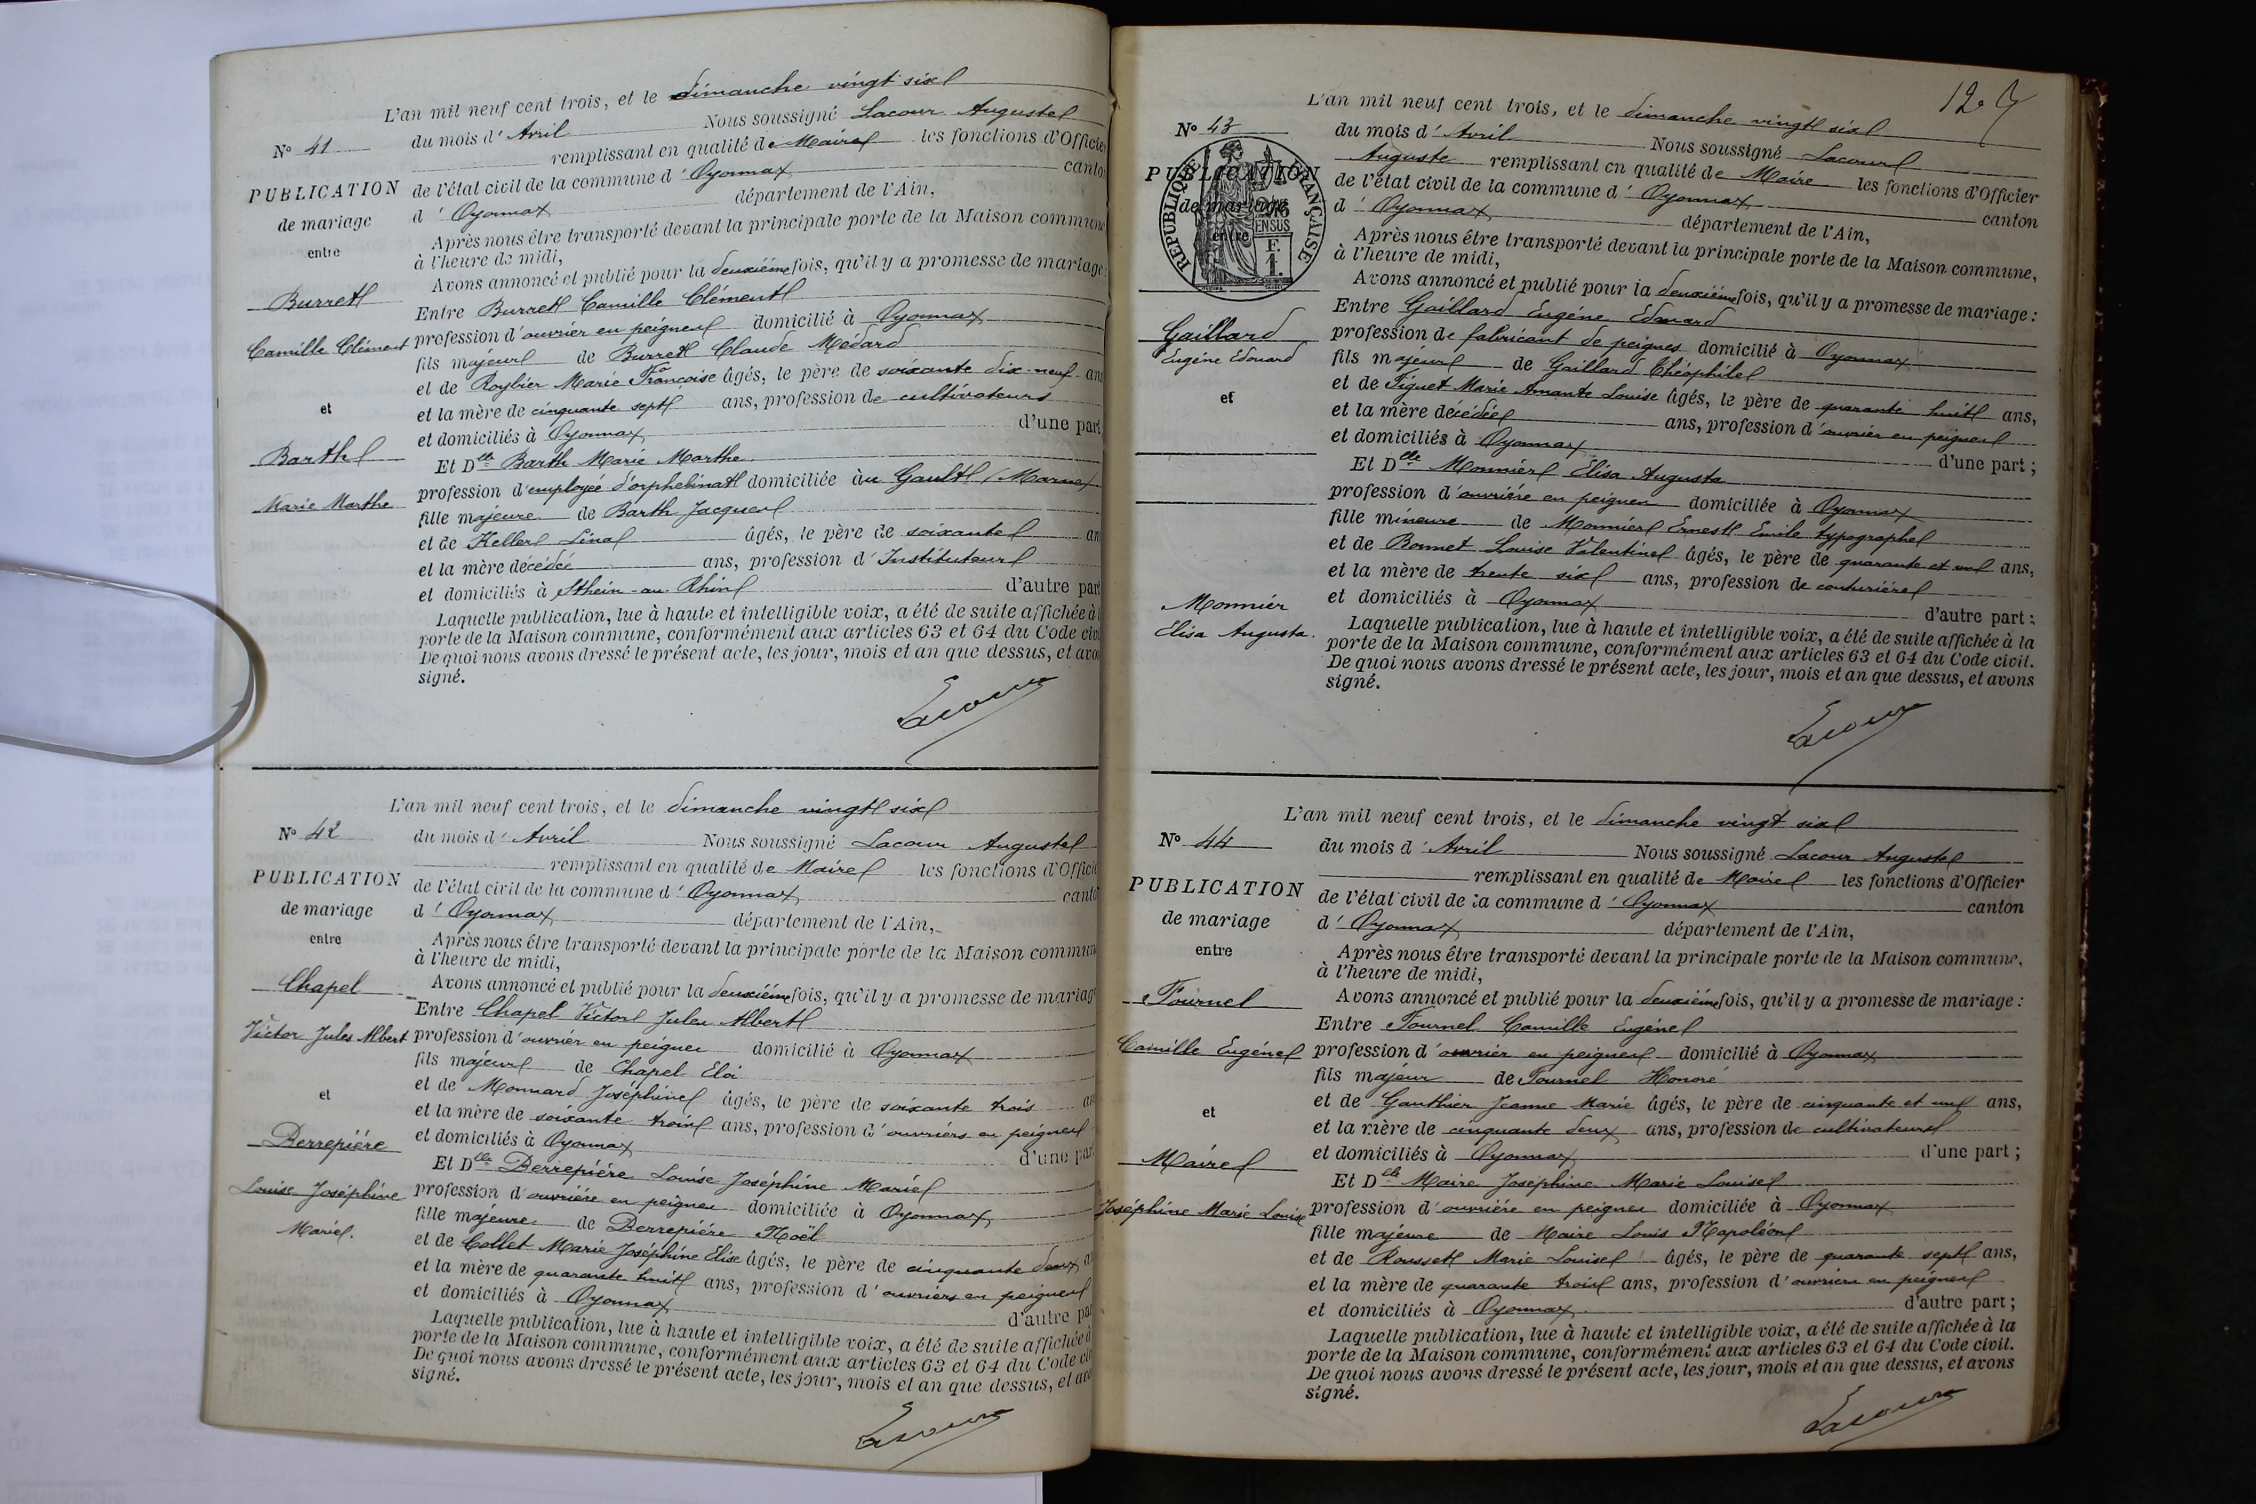 L'an mil neuf cent trois, et le dimanche vingt six
N° 41 du mois d'Avril Nous soussigné Lacour Auguste
remplissant en qualité de Maire les fonctions d'Officier
PUBLICATION de l'état civil de la commune d'Oyonnax canton
de mariage d'Oyonnax département de l'Ain,
entre Après nous être transporté devant la principale porte de la Maison commune
à l'heure de midi,
Avons annoncé et publié pour la deuxième fois, qu'il y a promesse de mariage:
Burret Entre Burret Camille Clément
Camille Clément profession d'ouvrier en peignes domicilié à Oyonnax
fils majeur de Burret Claude Médard
et de Roybier Marie Françoise âgés, le père de soixante dix-neuf ans
et et la mère de cinquante sept ans, profession de cultivateurs
et domiciliés à Oyonnax d'une part
Barth Et Dlle Barth Marie Marthe
profession d'employée d'orphelinat domiciliée au Gault (Marne)
Marie Marthe fille majeure de Barth Jacques
et de Keller Léna âgés, le père de soixante an
et la mère décédée ans, profession d'Instituteur
et domiciliés à Sthein-au-Rhin d'autre part
Laquelle publication, lue à haute et intelligible voix, a été de suite affichée à
porte de la Maison commune, conformément aux articles 63 et 64 du Code civ
De quoi nous avons dressé le présent acte, les jour, mois et an que dessus, et avo
signé.
Lacour
L'an mil neuf cent trois, et le dimanche vingt six
N° 42 du mois d'Avril Nous soussigné Lacour Auguste
remplissant en qualité de Maire les fonctions d'Offici
PUBLICATION de l'état civil de la commune d'Oyonnax canto
de mariage d'Oyonnax département de l'Ain,
entre Après nous être transporté devant la principale porte de la Maison commun
à l'heure de midi,
Avons annoncé et publié pour la deuxième fois, qu'il y a promesse de mariag
Chapel Entre Chapel Victor Jules Albert
Victor Jules Albert profession d'ouvrier en peignes domicilié à Oyonnax
fils majeur de Chapel Eloi
et de Monnard Joséphine âgés, le père de soixante trois an
et et la mère de soixante trois ans, profession d'ouvriers en peignes
et domiciliés à Oyonnax d'une par
Derrepière Et Dlle Derrepière Louise Joséphine Marie
Louise Joséphine profession d'ouvrière en peignes domiciliée à Oyonnax
Marie. fille majeure de Derrepière Noël
et de Collet Marie Joséphine Elise âgés, le père de cinquante deux a
et la mère de quarante huit ans, profession d'ouvriers en peignes
et domiciliés à Oyonnax d'autre par
Laquelle publication, lue à haute et intelligible voix, a été de suite affichée à
porte de la Maison commune, conformément aux articles 63 et 64 du Code civ
De quoi nous avons dressé le présent acte, les jour, mois et an que dessus, et avo
signé.
Lacour
L'an mil neuf cent trois, et le dimanche vingt six
N° 43 du mois d'Avril Nous soussigné Lacour
Auguste remplissant en qualité de Maire les fonctions d'Officier
PUBLICATION de l'état civil de la commune d'Oyonnax canton
de mariage d'Oyonnax département de l'Ain,
entre Après nous être transporté devant la principale porte de la Maison commune,
RÉPUBLIQUE FRANÇAISE
F.
1.
à l'heure de midi,
Avons annoncé et publié pour la deuxième fois, qu'il y a promesse de mariage:
Entre Gaillard Eugène Edouard
Gaillard profession de fabricant de peignes domicilié à Oyonnax
Eugène Edouard fils majeur de Gaillard Théophile
et de Piguet Marie Amante Louise âgés, le père de quarante huit ans,
et et la mère décédée ans, profession d'ouvrier en peignes
et domiciliés à Oyonnax d'une part;
Et Dlle Monnier Elisa Augusta
profession d'ouvrière en peignes domiciliée à Oyonnax
fille mineure de Monnier Ernest Emile typographe
et de Bonnet Louise Valentine âgés, le père de quarante et un ans,
et la mère de trente six ans, profession de couturière
Monnier et domiciliés à Oyonnax d'autre part;
Elisa Augusta. Laquelle publication, lue à haute et intelligible voix, a été de suite affichée à la
porte de la Maison commune, conformément aux articles 63 et 64 du Code civil.
De quoi nous avons dressé le présent acte, les jour, mois et an que dessus, et avons
signé.
Lacour
L'an mil neuf cent trois, et le dimanche vingt six
N° 44 du mois d'Avril Nous soussigné Lacour Auguste
remplissant en qualité de Maire les fonctions d'Officier
PUBLICATION de l'état civil de la commune d'Oyonnax canton
de mariage d'Oyonnax département de l'Ain,
entre Après nous être transporté devant la principale porte de la Maison commune,
à l'heure de midi,
Avons annoncé et publié pour la deuxième fois, qu'il y a promesse de mariage:
Fournel Entre Fournel Camille Eugène
Camille Eugène profession d'ouvrier en peignes domicilié à Oyonnax
fils majeur de Fournel Honoré
et de Gauthier Jeanne Marie âgés, le père de cinquante et un ans,
et et la mère de cinquante deux ans, profession de cultivateurs
et domiciliés à Oyonnax d'une part;
Maire Et Dlle Maire Joséphine Marie Louise
Joséphine Marie Louise profession d'ouvrière en peignes domiciliée à Oyonnax
fille majeure de Maire Louis Napoléon
et de Rousset Marie Louise âgés, le père de quarante sept ans,
et la mère de quarante trois ans, profession d'ouvriers en peignes
et domiciliés à Oyonnax. d'autre part;
Laquelle publication, lue à haute et intelligible voix, a été de suite affichée à la
porte de la Maison commune, conformément aux articles 63 et 64 du Code civil.
De quoi nous avons dressé le présent acte, les jour, mois et an que dessus, et avons
signé.
Lacour